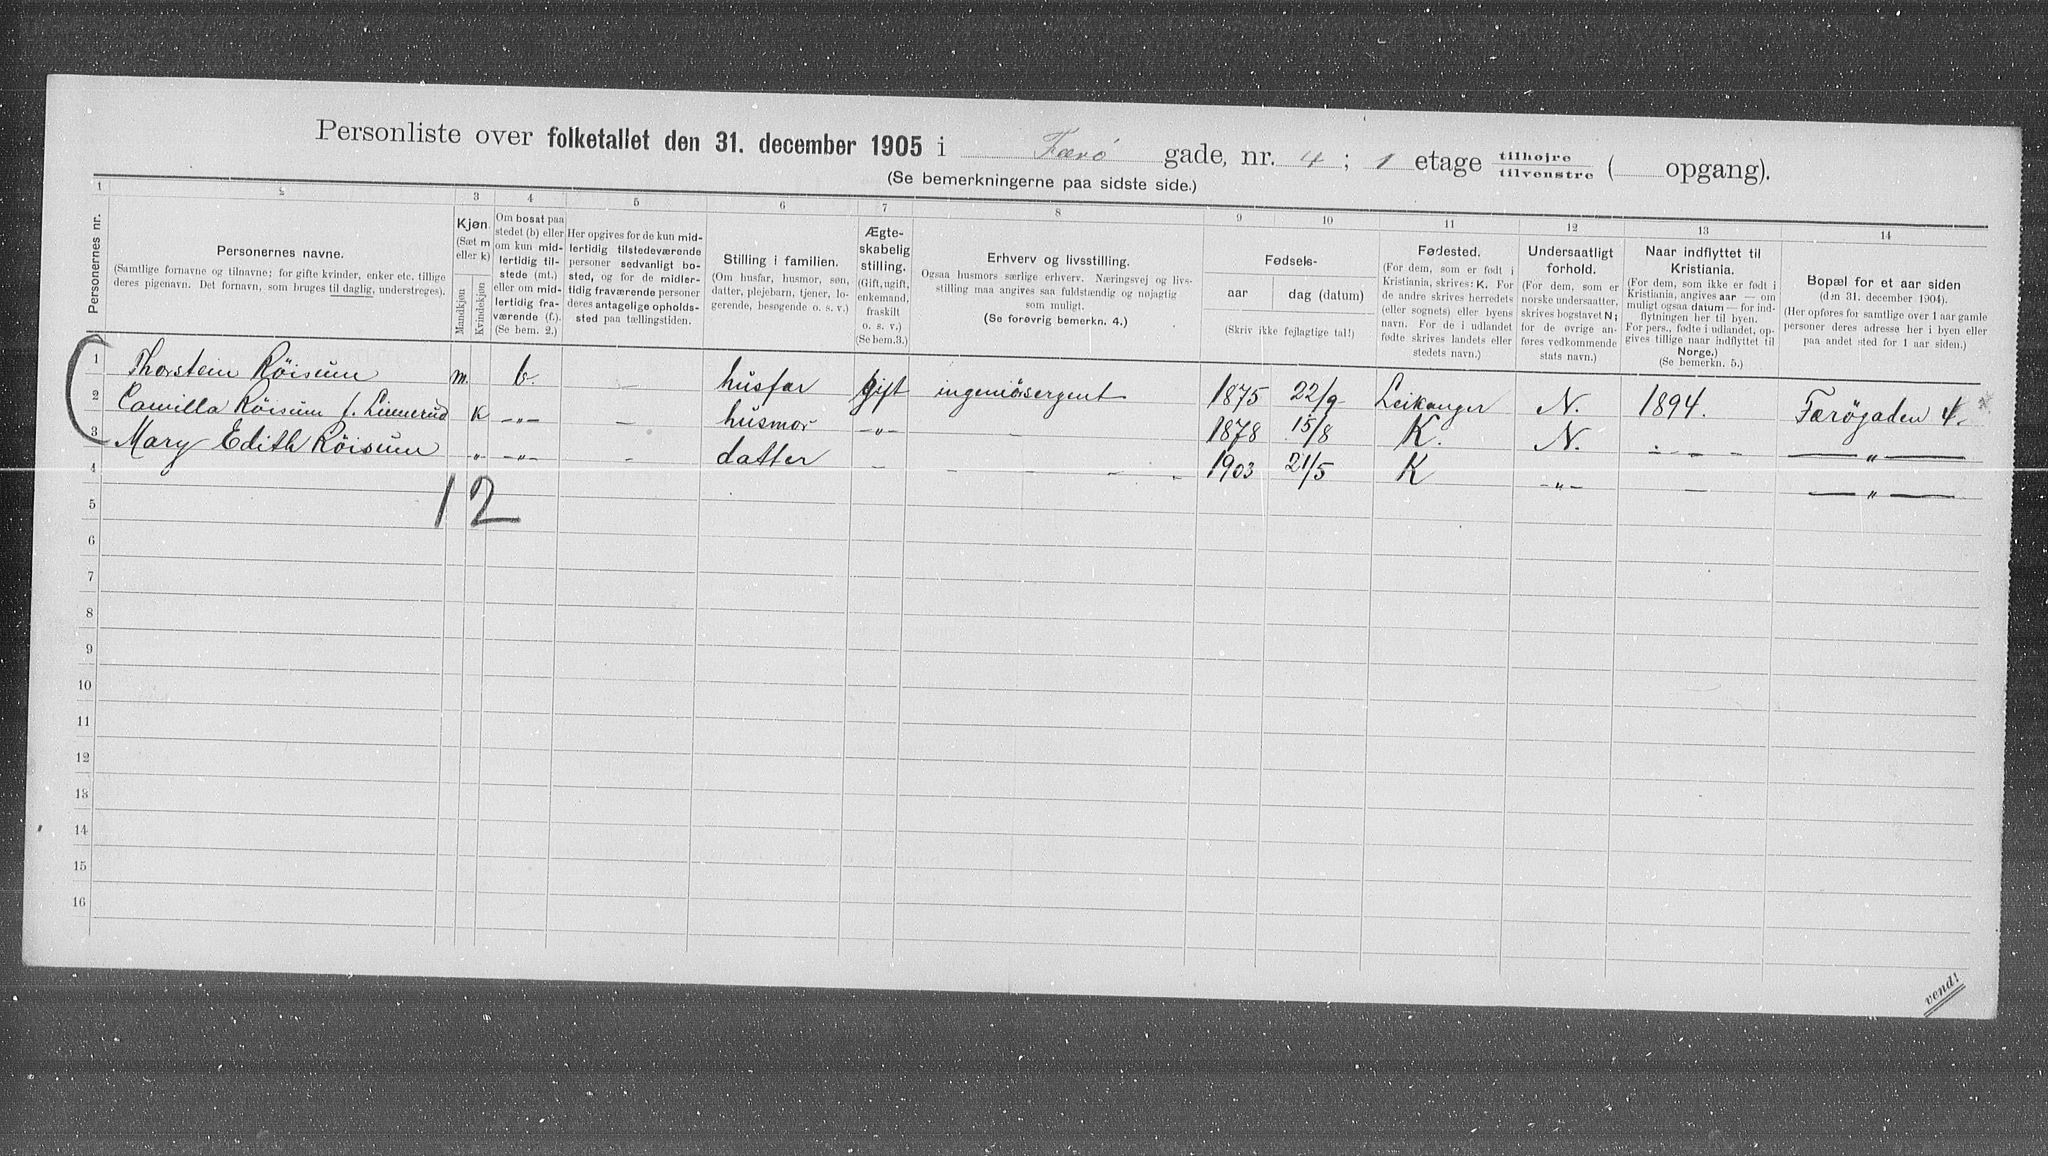 Personliste over folketallet den 31. december 1905 i Færø gade, nr. 4; 1 etage tilhøjre tilvenstre ( opgang).
(Se bemerkningerne paa sidste side.)
1 2 3 4 5 6 7 8 9 10 11 12 13 14
Personernes nr.
Personernes navne.
(Samtlige fornavne og tilnavne; for gifte kvinder, enker etc. tillige
deres pigenavn. Det fornavn, som bruges til daglig, understreges).
Kjøn.
(Sæt m
eller k)
Mandkjøn
Kvindekjøn
Om bosat paa
stedet (b) eller
om kun mid-
lertidig til-
stede (mt.)
eller om mid-
lertidig fra-
værende (f.).
(Se bem. 2.)
Her opgives for de kun mid-
lertidig tilstedeværende
personer sedvanligt bo-
sted, og for de midler-
tidig fraværende personer
deres antagelige opholds-
sted paa tællingstiden.
Stilling i familien.
(Om husfar, husmor, søn,
datter, plejebarn, tjener, lo-
gerende, besøgende o. s. v.)
Ægte-
skabelig
stilling.
(Gift, ugift,
enkemand,
fraskilt
o. s. v.)
(Se bem.3.)
Erhverv og livsstilling.
Ogsaa husmors særlige erhverv. Næringsvej og livs-
stilling maa angives saa fuldstændig og nøjagtig
som muligt.
(Se forøvrig bemerkn. 4.)
Fødsels-
aar
dag (datum)
(Skriv ikke fejlagtige tal!)
Fødested.
(For dem, som er født i
Kristiania, skrives: K. For
de andre skrives herredets
(eller sognets) eller byens
navn. For de i udlandet
fødte skrives landets eller
stedets navn.)
Undersaatligt
forhold.
(For dem, som er
norske undersaatter,
skrives bogstavet N;
for de øvrige an-
føres vedkommende
stats navn.)
Naar indflyttet til
Kristiania.
(For dem, som ikke er født i
Kristiania, angives aar — om
muligt ogsaa datum — for ind-
flytningen her til byen.
For pers., fødte i udlandet, op-
gives tillige naar indflyttet til
Norge.)
(Se bemerkn. 5.)
Bopæl for et aar siden
(den 31. december 1904).
(Her opføres for samtlige over 1 aar gamle
personer deres adresse her i byen eller
paa andet sted for 1 aar siden.)
1 Thorstein Röisum m. b. — husfar gift ingeniørsergent 1875 22/9 Leikanger N. 1894. Færøgaden 4.
2 Camilla Röisum f. Linnerud K -„- — husmor -„- — 1878 15/8 K. N. - - - - — „ —
3 Mary Edith Röisum „ -„- - datter - - - - 1903 21/5 K -„- — — „ —
4
1 2
5
6
7
8
9
10
11
12
13
14
15
16
vend!